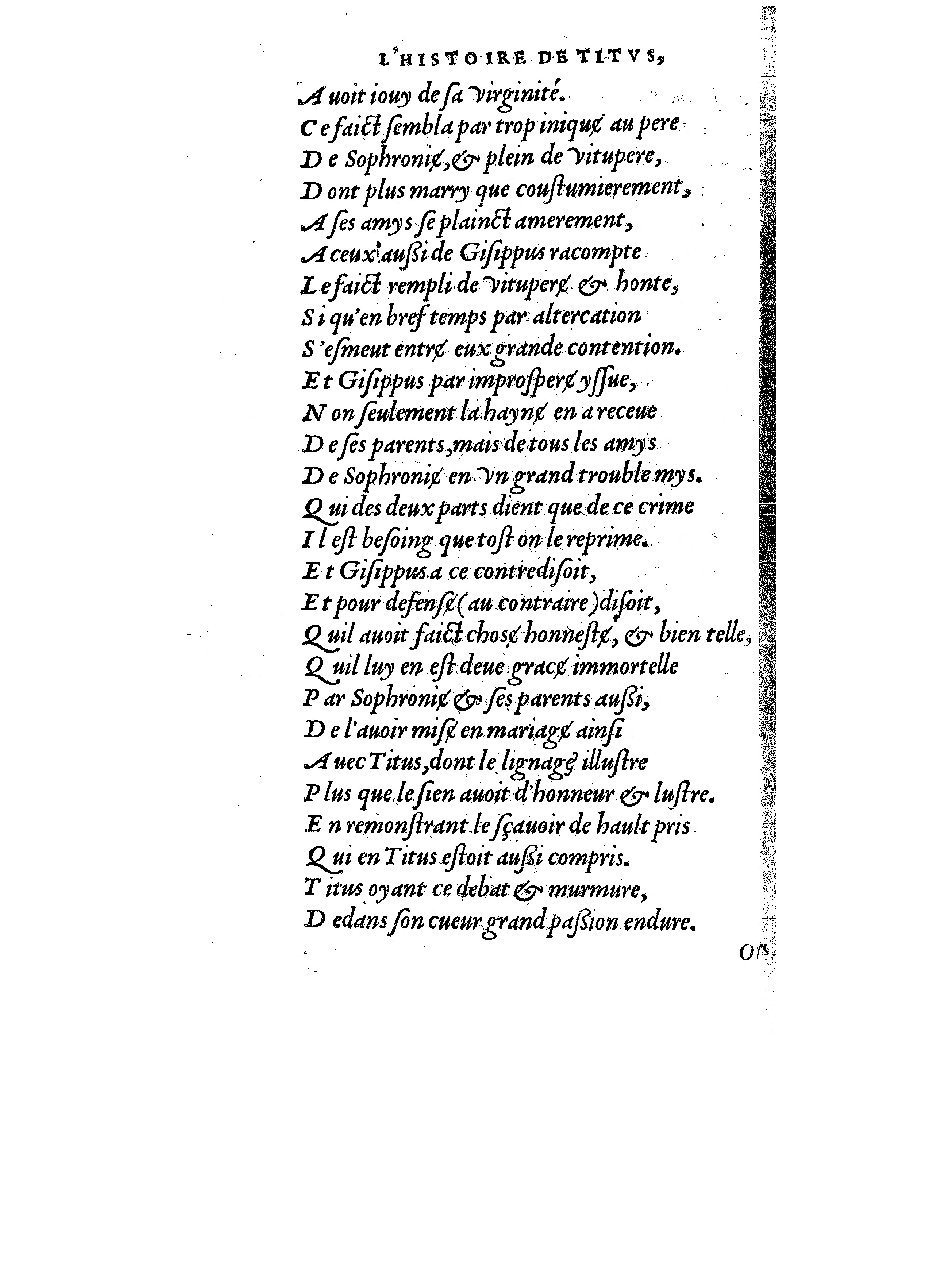 L'HISTOIRE DE TITVS,
Auoit iouy de ſa virginité.
Ce faict ſembla par trop iniquɇ au pere
De Sophroniɇ, & plein de vitupere,
Dont plus marry que couſtumierement,
A ſes amys ſe plainct amerement,
A ceux auſſi de Giſippus racompte
Le faict rempli de vituperɇ & honte,
Si qu'en bref temps par altercation
S'eſmeut entrɇ eux grande contention.
Et Giſippus par improſperɇ yſſue,
Non ſeulement la haynɇ en a receue
De ſes parents, mais de tous les amys
De Sophroniɇ en vn grand trouble mys.
Qui des deux parts dient que de ce crime
Il eſt beſoing que toſt on le reprime.
Et Giſippus a ce contrediſoit,
Et pour defenſɇ (au contraire) diſoit,
Quil auoit faict choſɇ honneſtɇ, & bien telle,
Quil luy en eſt deue gracɇ immortelle
Par Sophroniɇ & ſes parents auſſi,
De l'auoir miſɇ en mariagɇ ainſi
Auec Titus, dont le lignagɇ illuſtre
Plus que le ſien auoit d'honneur & luſtre.
En remonſtrant le ſçauoir de hault pris
Qui en Titus eſtoit auſſi compris.
Titus oyant ce debat & murmure,
Dedans ſon cueur grand paſſion endure.
Ors